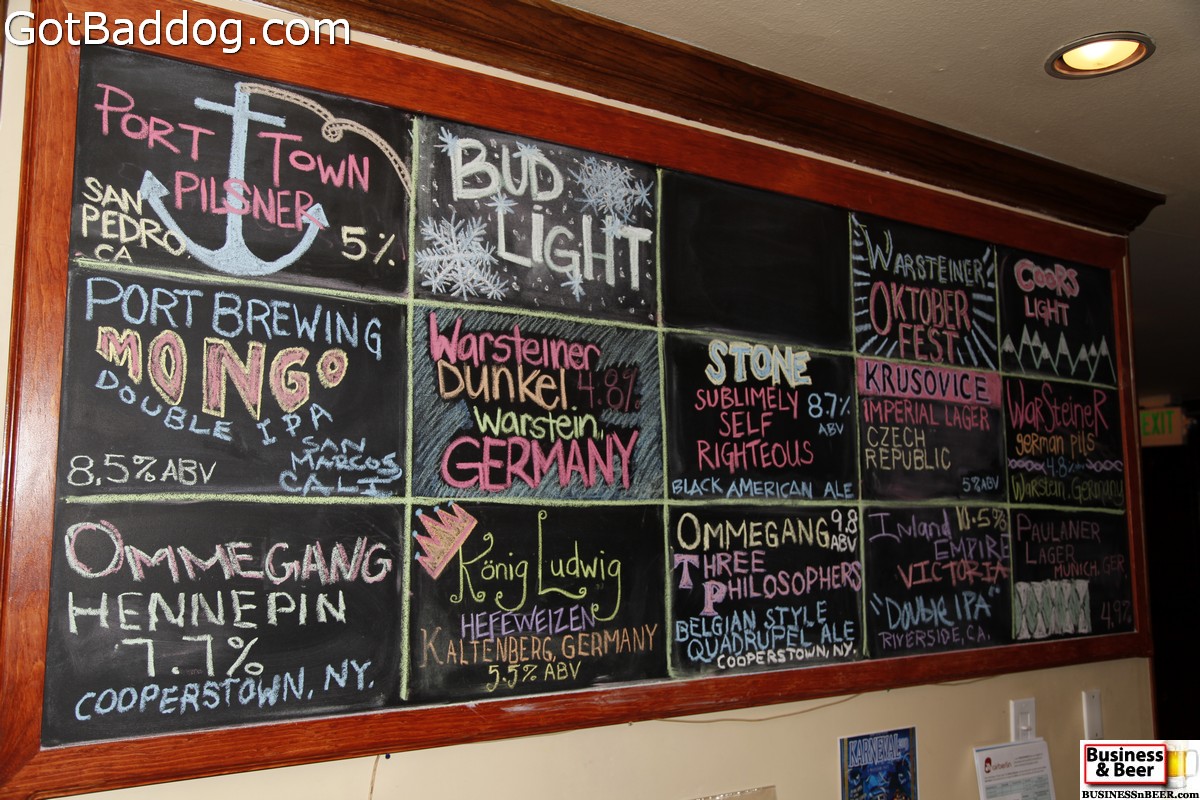 GotBaddog.com
PORT TOWN
PILSNER
SAN
PEDRO.
CA
5%
BUD
LIGHT
WARSTEINER
OKTOBER
FEST
COORS
LIGHT
PORT BREWING
MONGO
DOUBLE IPA
SAN
MARCOS
CALI
8.5% ABV
Warsteiner
DUNKEL 4.8%
Warstein,
GERMANY
STONE
SUBLIMELY
SELF
RIGHTEOUS
8.7%
ABV
BLACK AMERICAN ALE
KRUSOVICE
IMPERIAL LAGER
CZECH
REPUBLIC
5% ABV
WARSTEINER
german pils
4.8%
Warstein, Germany
OMMEGANG
HENNEPIN
7.7%
COOPERSTOWN, NY.
König Ludwig
HEFEWEIZEN
KALTENBERG, GERMANY
5.5% ABV
OMMEGANG 9.8
ABV
THREE
PHILOSOPHERS
BELGIAN STYLE
QUADRUPEL ALE
COOPERSTOWN, NY.
Inland 10.5%
EMPIRE
VICTORIA
"DOUBLE IPA"
RIVERSIDE, CA.
PAULANER
LAGER
MUNICH, GER
4.9%
EXIT
KARNEVAL
Business
& Beer
BUSINESSnBEER.com